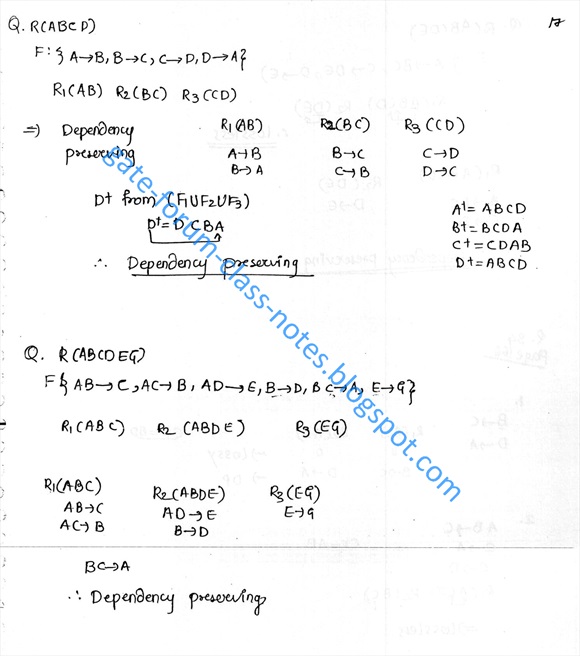 17
Q. R(ABCD)
F: { A→B, B→C, C→D, D→A}
R1(AB) R2(BC) R3(CD)
⇒ Dependency preserving
R1(AB) R2(BC) R3(CD)
A→B B→C C→D
B→A C→B D→C
D+ from (F1UF2UF3)
D+ = D CBA
∴ Dependency preserving
A+ = ABCD
B+ = BCDA
C+ = CDAB
D+ = ABCD
Q. R(ABCDEG)
F{ AB→C, AC→B, AD→E, B→D, BC→A, E→G}
R1(ABC) R2(ABDE) R3(EG)
R1(ABC) R2(ABDE) R3(EG)
AB→C AD→E E→G
AC→B B→D
BC→A
∴ Dependency preserving
gate-forum-class-notes.blogspot.com